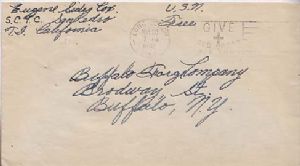 Eugene Sidey Cox
S.C.T.C. San Pedro
T.I. California
U.S.N.
Free
GIVE
Buffalo Forge Company
Brodway St.
Buffalo, N.Y.